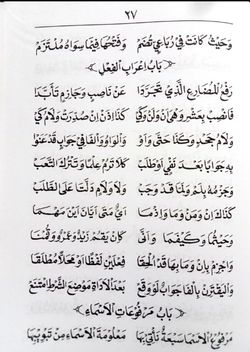 ٢٧
وَحَيْثُ كَانَتْ فِي رُبَاعِيٍّ تُضَمْ وَفَتْحُهَا فِيمَا سِوَاهُ مُلْتَزَمْ
﴿ بَابُ إِعْرَابِ الْفِعْلِ ﴾
رَفْعُ الْمُضَارِعِ الَّذِي تَجَرَّدَا عَنْ نَاصِبٍ وَجَازِمٍ تَأَبَّدَا
فَانْصِبْ بِعَشْرٍ وَهْيَ أَنْ وَلَنْ وَكَيْ كَذَا إِذَنْ إِنْ صُدِّرَتْ وَلَامُ كَيْ
وَلَامُ جَحْدٍ وَكَذَا حَتَّى وَأَوْ وَالْوَاوُ وَالْفَا فِي جَوَابٍ قَدْ عَنَوْا
بِهِ جَوَابًا بَعْدَ نَفْيٍ أَوْ طَلَبْ كَلَا تَرُمْ عِلْمًا وَتَتْرُكَ التَّعَبْ
وَجَزْمُهُ بِلَمْ وَلَمَّا قَدْ وَجَبْ وَلَا وَلَامٍ دَلَّتَا عَلَى الطَّلَبْ
كَذَاكَ إِنْ وَمَا وَمَنْ وَإِذْمَا أَيٌّ مَتَى أَيَّانَ أَيْنَ مَهْمَا
وَحَيْثُمَا وَكَيْفَمَا وَأَنَّى كَإِنْ يَقُمْ زَيْدٌ وَعَمْرٌو قُمْنَا
وَاجْزِمْ بِإِنْ وَمَا بِهَا قَدْ أُلْحِقَا فِعْلَيْنِ لَفْظًا أَوْ مَحَلًّا مُطْلَقَا
وَلْيَقْتَرِنْ بِالْفَا جَوَابٌ لَوْ وَقَعْ بَعْدَ الْأَدَاةِ مَوْضِعَ الشَّرْطِ امْتَنَعْ
﴿ بَابُ مَرْفُوعَاتِ الْأَسْمَاءِ ﴾
مَرْفُوعُ الْأَسْمَا سَبْعَةٌ نَأْتِي بِهَا مَعْلُومَةَ الْأَسْمَاءِ مِنْ تَبْوِيبِهَا